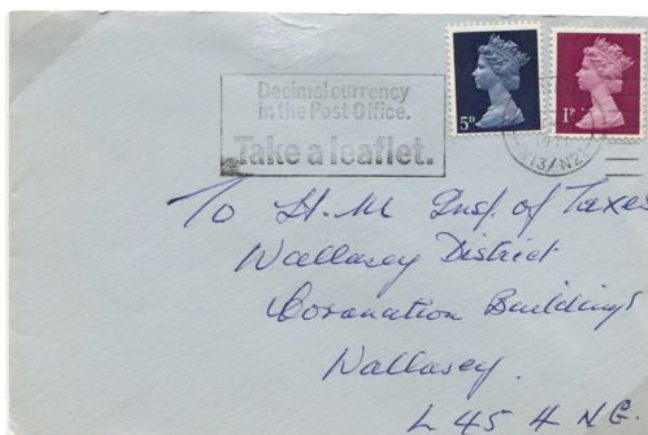 5D
1P
Decimal currency
in the Post Office.
Take a leaflet.
N13/N21
To H.M Insp. of Taxes
Wallasey District
Coronation Buildings
Wallasey.
L45 4NG.